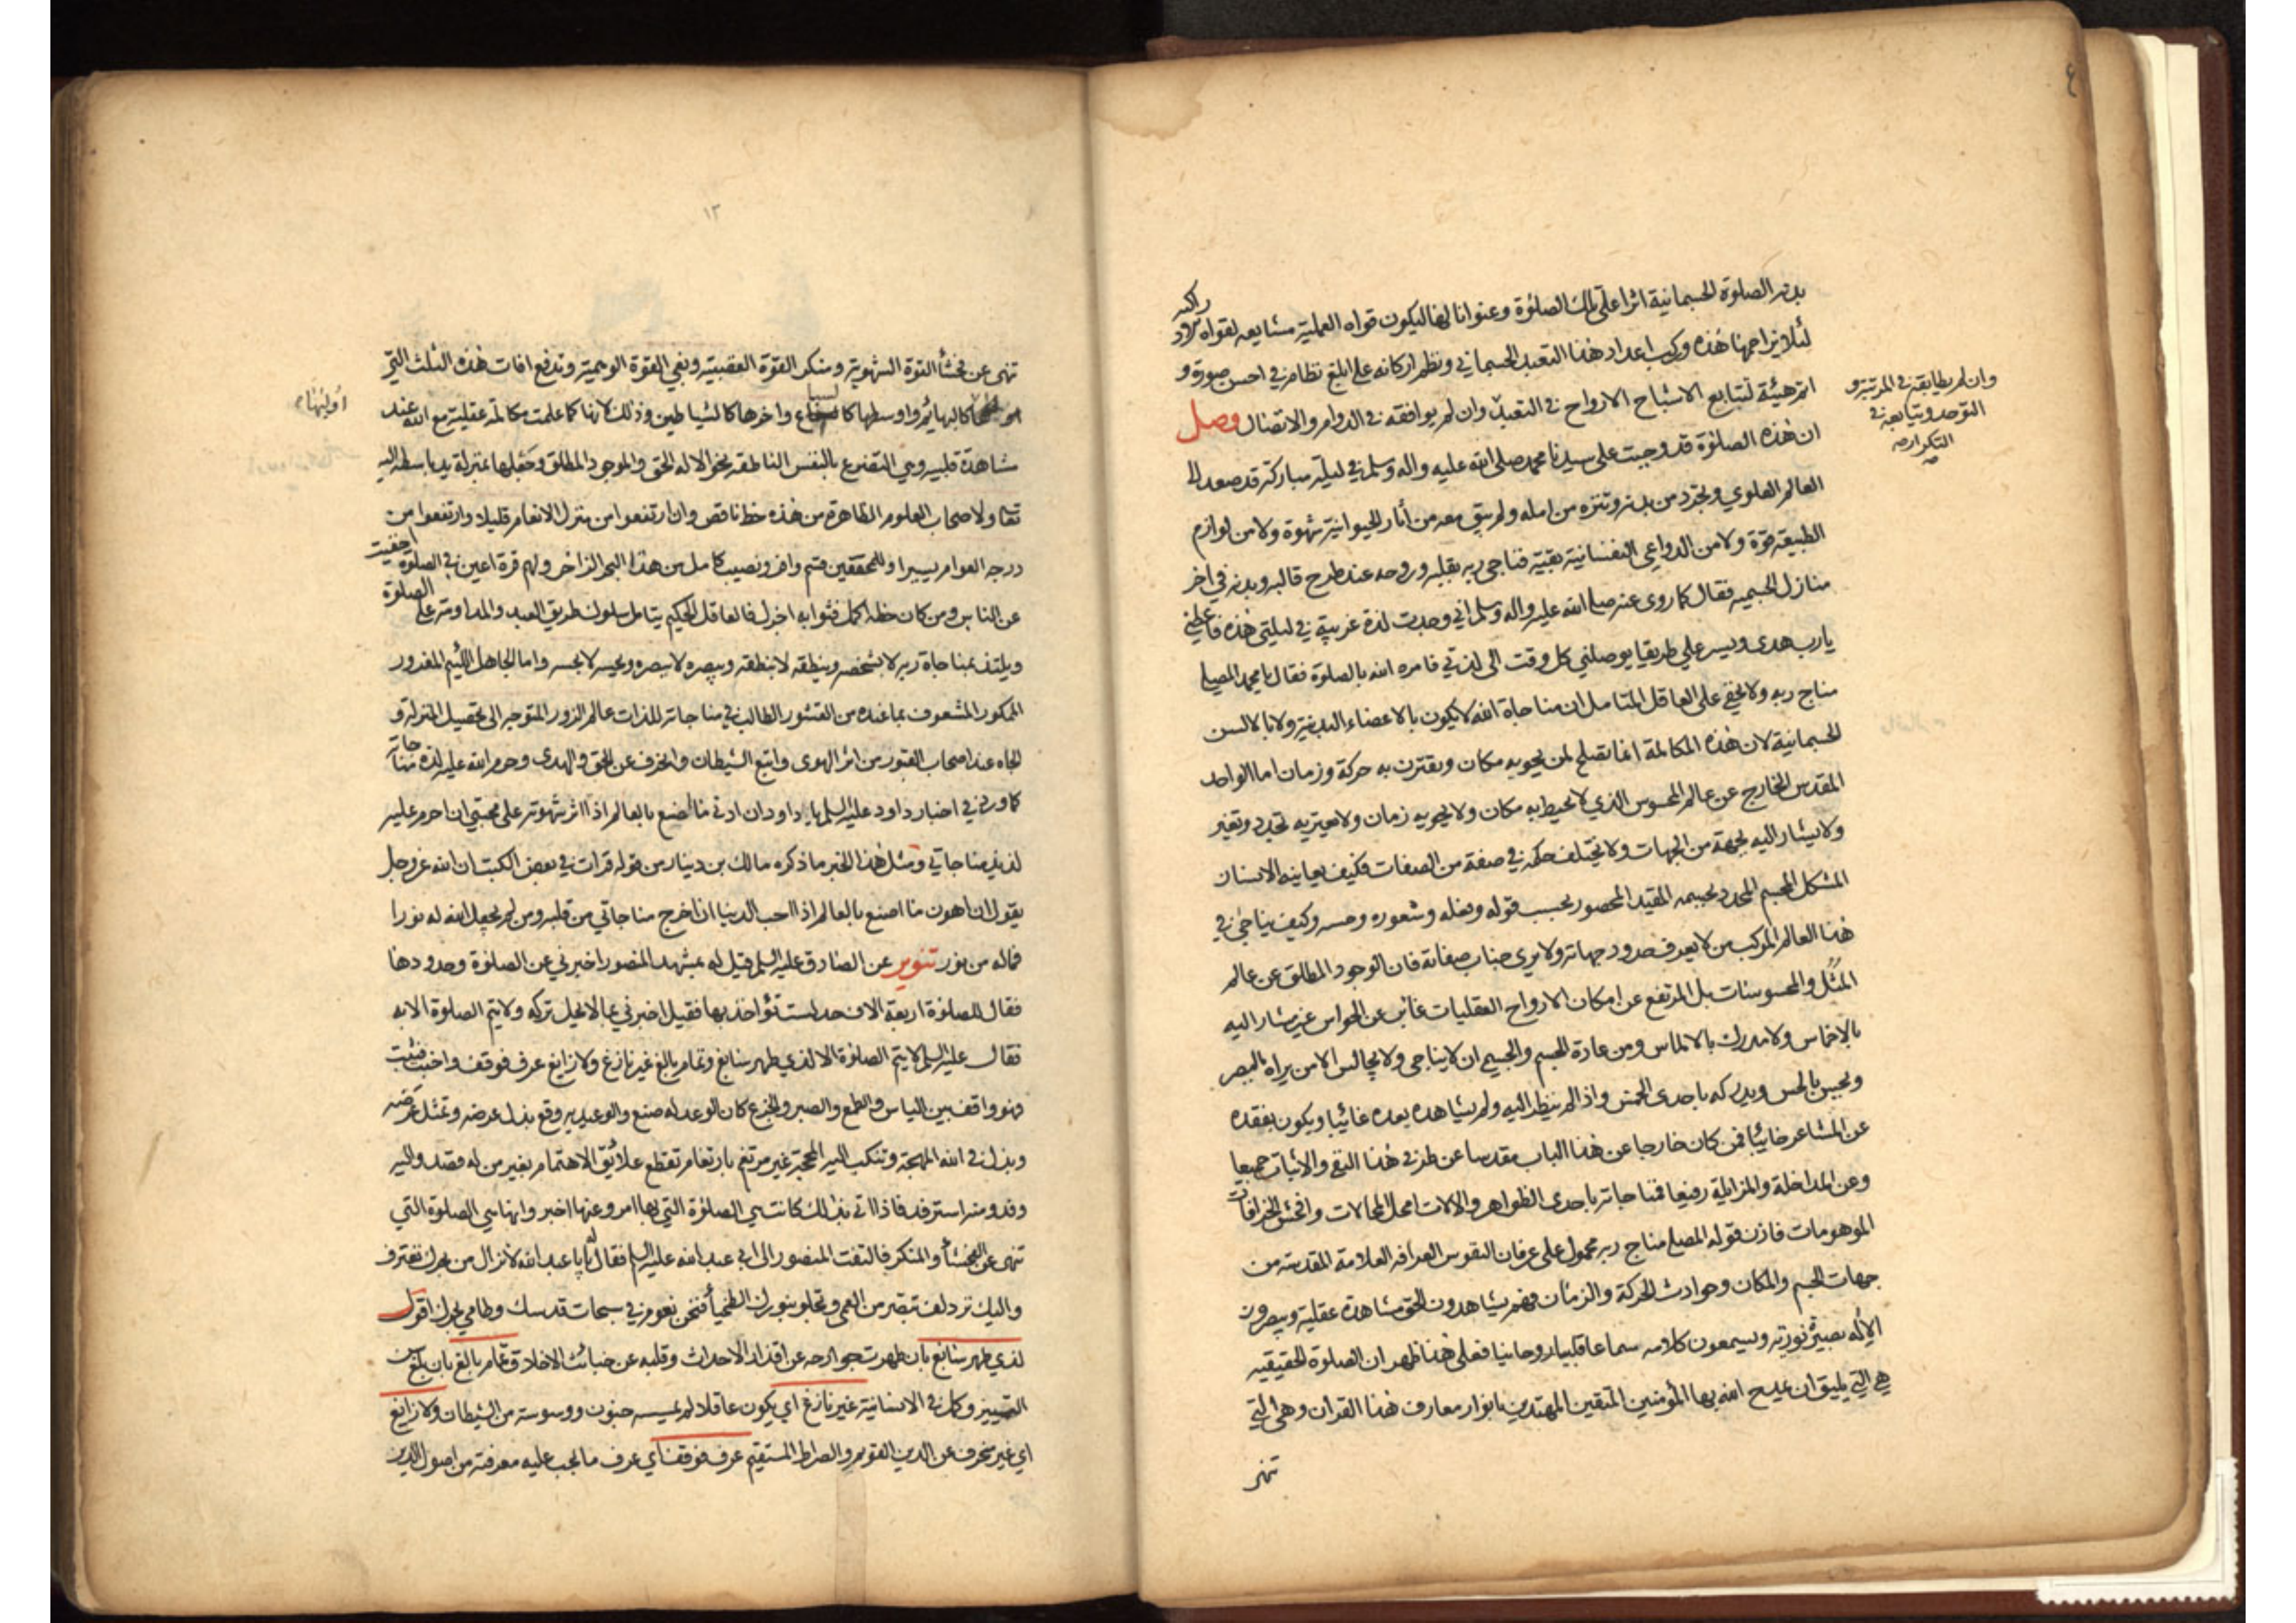 ٤
بدنه الصلوة الجسمانية اثرا على تلك الصلوة وعنوانا لها ليكون قواه العملية مشايعه لقواه
لئلا يزاحمها هذه وركب اعداد هذا التعبد الجسماني ونظم اركانه على ابلغ نظام في احسن صورة و
اتم هيئة لتتابع الاشباح الارواح في التعبد وان لم يوافقه في الدوام والاتصال وصل
وان لم يطابقه في المرتبة و
التوحد ويتابعه في
التكرار صه
ان هذه الصلوة قد وجبت على سيدنا محمد صلى الله عليه واله وسلم في ليلة مباركة قد صعد الى
العالم العلوي وتجرد من بدنه وتنزه من امله ولم يبق معه من آثار الحيوانية شهوة ولا من لوازم
الطبيعة قوة ولا من الدواعي النفسانية بقية فناجى ربه بقلبه وروحه عند طرح قالبه وبدنه في اخر
منازل الجسمية فقال كما روى عنه صلى الله عليه واله وسلم اني وجدت لذة غريبة في ليلتي هذه فاعطني
يارب هدى ويسر علي طريقا يوصلني كل وقت الى لذتي فامره الله بالصلوة فقال يا محمد المصلي
مناج ربه ولا يخفى على العاقل المتامل ان مناجاة الله لا يكون بالاعضاء البدنية ولا بالالسن
الجسمانية لان هذه المكالمة انما تصلح لمن يحويه مكان ويقترن به حركة وزمان اما الواحد
المقدس الخارج عن عالم المحسوس الذي لا يحيط به مكان ولا يحويه زمان ولا يعتريه تجدد وتغير
ولا يشار اليه بجهة من الجهات ولا يختلف حكمه في صفة من الصفات فكيف يعاينه الانسان
المشكل المجسم المحدد بجسمه المقيد المحصور بحسب قوله وفعله وشعوره وحسه وكيف يناجي في
هذا العالم المركب من لا يعرف حدود جهاته ولا يرى جناب صفاته فان الوجود المطلق عن عالم
المثل والمحسوسات بل المرتفع عن امكان الارواح العقليات غائب عن الحواس غير مشار اليه
بالاخماس ولا مدرك بالالماس ومن عادة الجسم والجسمي ان لا يناجي ولا يجالس الا من يراه بالبصر
ويحس بالحس ويدركه باحدى الخمس واذا لم ينظر اليه ولم يشاهده يعده غائبا ويكون بفقده
عن المشاعر خائبا فمن كان خارجا عن هذا الباب مقدسا عن طرفي هذا النفي والاثبات جميعا
وعن المداخلة والمزايلة رفيعا فمناجاته باحدى الظواهر والالات امحل المحالات وافحش الخرافات
الموهومات فاذن قوله المصلي مناج ربه محمول على عرفان النفوس العرافة العلامة المقدسة من
جهات الجسم والمكان وحوادث الحركة والزمان فهم يشاهدون الحق مشاهدة عقلية ويبصرون
الاله بصيرة نورية ويسمعون كلامه سماعا قلبيا روحانيا فعلى هذا ظهر ان الصلوة الحقيقيه
هي التي يليق ان يمدح الله بها المؤمنين المتقين المهتدين بانوار معارف هذا القران وهي التي
تنهى
١٣
تنهى عن فحشاء القوة الشهوية ومنكر القوة الغضبية وبغي القوة الوهمية وتدفع افات هذه الثلث التي
اوليها
كالبهائم واوسطها كالسباع واخرها كالشياطين وذلك لانها كما علمت مكالمة عقلية مع الله عند
مشاهدة قلبية وهي التضرع بالنفس الناطقة نحو الاله الحق والموجود المطلق وجعلها بمنزلة يد باسطة اليه
تعا ولاصحاب العلوم الظاهرة من هذه حظ ناقص وان ارتفعوا من منزل الانعام قليلا وارتفعوا من
درجة العوام يسيرا وللمحققين قسم واف ونصيب كامل من هذا البحر الزاخر ولهم قرة اعين في الصلوة اخفيت
عن الناس ومن كان حظه اكمل فثوابه اجزل فالعاقل الحكيم يتامل سلوك طريق العبد والمداومة على الصلوة
ويلتذ بمناجاة ربه لا بشخصه وينطقه لا بنطقه ويبصره لا ببصره ويحسه لا بحسه واما الجاهل اللئيم المغدور
الممكور المشعوف بما عنده من القشور الطالب في مناجاته للذات عالم الزور المتوجه الى تحصيل المنزلة و
الجاه عند اصحاب القبور من اثر الهوى واتبع الشيطان وانحرف عن الحق والهدى وحرم الله عليه لذة مناجاته
كما ورد في اخبار داود عليه السلم يا داود ان ادنى ما اصنع بالعالم اذا اثر شهوته على محبتي ان احرم عليه
لذيذ مناجاتي ومثل هذا الخبر ما ذكره مالك بن دينار من قوله قرات في بعض الكتب ان الله عز وجل
يقول ان اهون ما اصنع بالعالم اذا احب الدنيا ان اخرج مناجاتي من قلبه ومن لم يجعل الله له نورا
فماله من نور تنوير عن الصادق عليه السلم قيل له بمشهد المنصور اخبرني عن الصلوة وحدودها
فقال للصلوة اربعة الاف حد لست تؤاخذ بها فقيل اخبرني بما لا يحل تركه ولا يتم الصلوة الا به
فقال عليه السلم لا يتم الصلوة الا لذي طهر سابغ وتمام بالغ غير نازغ ولا زائغ عرف فوقف واخبت فثبت
فهو واقف بين الياس والطمع والصبر والجزع كان الوعد له صنع والوعيد به وقع بذل عرضه وتمثل غرضه
وبذل في الله المهجة وتنكب اليه المحجة غير مرتغم بارتغام تقطع علائق الاهتمام بغير من له قصد واليه
وفد ومنه استرفد فاذا اتى بذلك كانت هي الصلوة التي بها امر وعنها اخبر وانها هي الصلوة التي
تنهى عن الفحشاء والمنكر فالتفت المنصور الى ابي عبد الله عليه السلم فقال له يا با عبد الله لا نزال من بحرك نغترف
واليك نزدلف تبصر من العمى وتجلو بنورك الطخياء فنحن نعوم في سبحات قدسك وطامي بحرك اقول
لذي طهر سابغ بان طهرت جوارحه عن اقذار الاحداث وقلبه عن خبائث الاخلاق تمام بالغ بان بلغ سن
التمييز وكمل في الانسانية غير نازغ اي يكون عاقلا لم يمسسه جنون ووسوسة من الشيطان ولا زائغ
اي غير منحرف عن الدين القويم والصراط المستقيم عرف فوقف اي عرف ما يجب عليه معرفته من اصول الدين